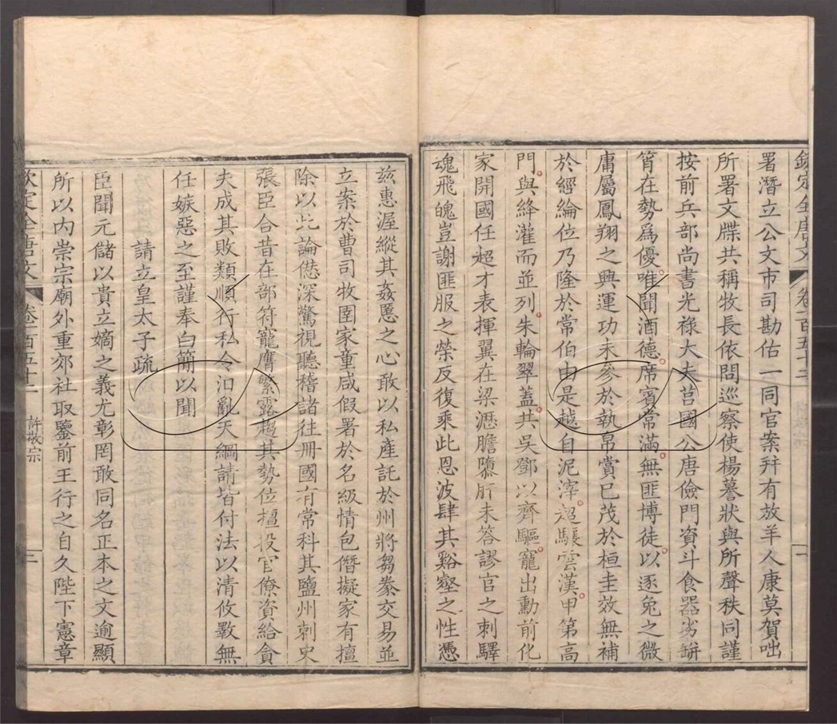 欽定全唐文 卷一百五十二 一
署潛立公文市司勘估一同官案幷有放羊人康莫賀咄
所署文牒共稱牧長依問巡察使楊䜓狀與所聲秩同謹
按前兵部尚書光祿大夫莒國公唐儉門資斗食器劣缾
筲在勢爲優唯聞酒德席賓常滿無匪博徒以逐兔之微
庸屬鳳翔之興運功未參於執帛賞已茂於桓圭效無補
於經綸位乃隆於常伯由是越自泥滓超驤雲漢甲第高
門與絳灌而並列朱輪翠蓋共吳鄧以齊驅寵出勳前化
家開國任超才表揮翼在梁瀝膽隳肝未答謬官之刺驛
魂飛魄豈謝匪服之榮反復乘此恩波肆其谿壑之性憑
茲惠渥縱其姦慝之心敢以私產託於州將芻豢交易並
立案於曹司牧圉家童咸假署於名級情包僭擬家有擅
除以此論僽深驚視聽稽諸往冊國有常科其鹽州刺史
張臣合昔在部符寵膺繁露趨其勢位擅役官僚資給貪
夫成其敗類順行私令汩亂天綱請皆付法以清攸斁無
任嫉惡之至謹奉白簡以聞
請立皇太子疏
臣聞元儲以貴立嫡之義尤彰罔敢同名正本之文逾顯
所以內崇宗廟外重郊社取鑒前王行之自久陛下憲章
欽定全唐文 卷一百五十二 許敬宗 二